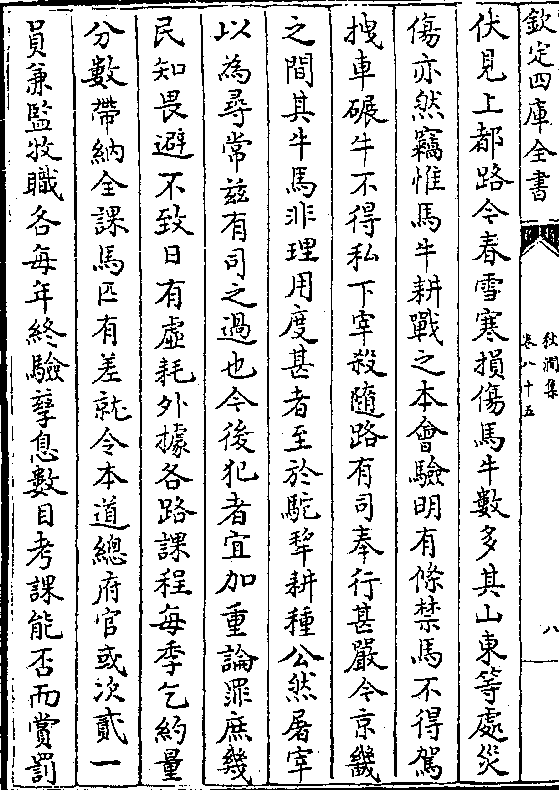 欽定四庫全書
秋澗集
卷八十五
八
伏見上都路今春雪寒損傷馬牛數多其山東等處災
傷亦然竊惟馬牛耕戰之本會驗明有條禁馬不得駕
拽車碾牛不得私下宰殺隨路有司奉行甚嚴今京畿
之間其牛馬非理用度甚者至於駝犂耕種公然屠宰
以為尋常兹有司之過也今後犯者宜加重論罪庶幾
民知畏避不致日有虛耗外據各路課程每季乞約量
分數帶納全課馬匹有差就令本道總府官或次貳一
員兼監牧職名每年終驗孳息數目考課能否而賞罰